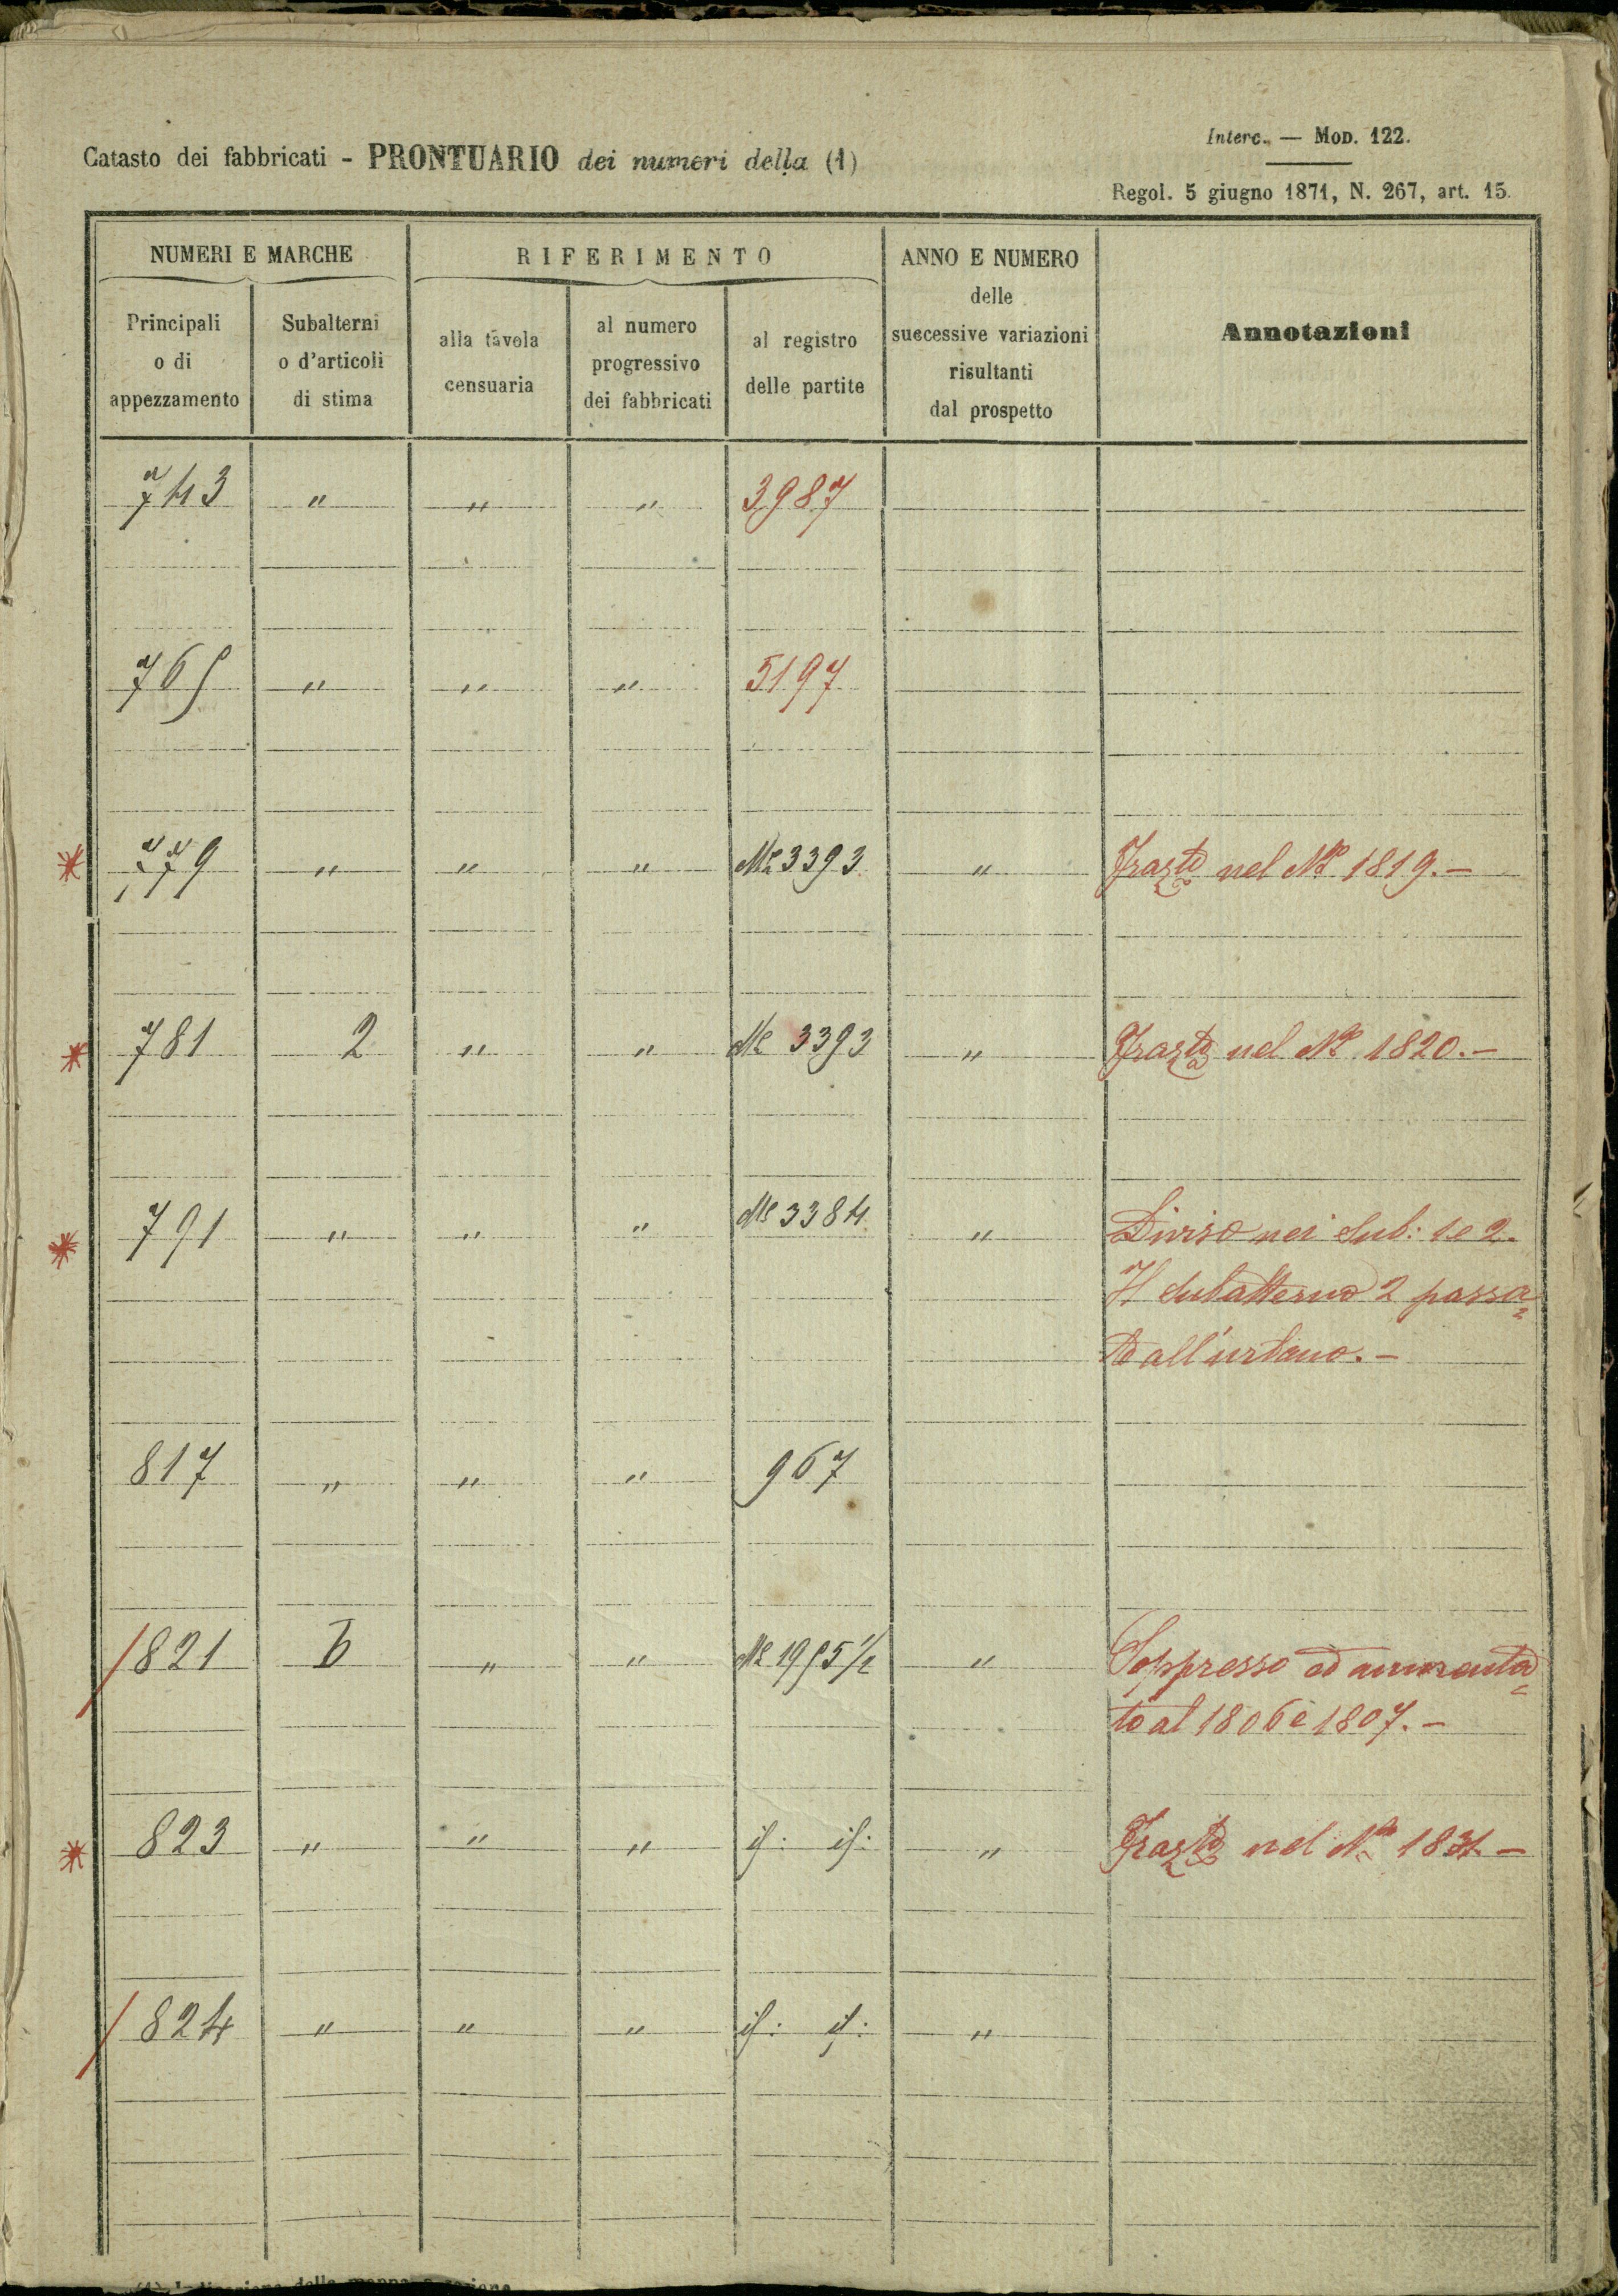 Interc. — MOD. 122.
Catasto dei fabbricati - PRONTUARIO dei numeri della (1)
Regol. 5 giugno 1871, N. 267, art. 15.
NUMERI E MARCHE
RIFERIMENTO
ANNO E NUMERO
delle
successive variazioni
risultanti
dal prospetto
Annotazioni
Principali
o di
appezzamento
Subalterni
o d'articoli
di stima
alla tavola
censuaria
al numero
progressivo
dei fabbricati
al registro
delle partite
743 " " " 3987
765 " " " 5197
* 779 " " " Me 3393 " Frazto nel No 1819.—
* 781 2 " " Me 3393 " Frazto nel No 1820.—
* 791 " " " Me 3384 " Diviso nei Sub: 1 e 2.
Il subalterno 2 passa=
to all'urbano.—
817 " " " 967
/ 821 b " " Me 1955 1/2 " Soppresso ed aumenta=
to al 1806 e 1807.—
* 823 " " " id: id: " Frazto nel No 1831.—
/ 824 " " " id: id: "